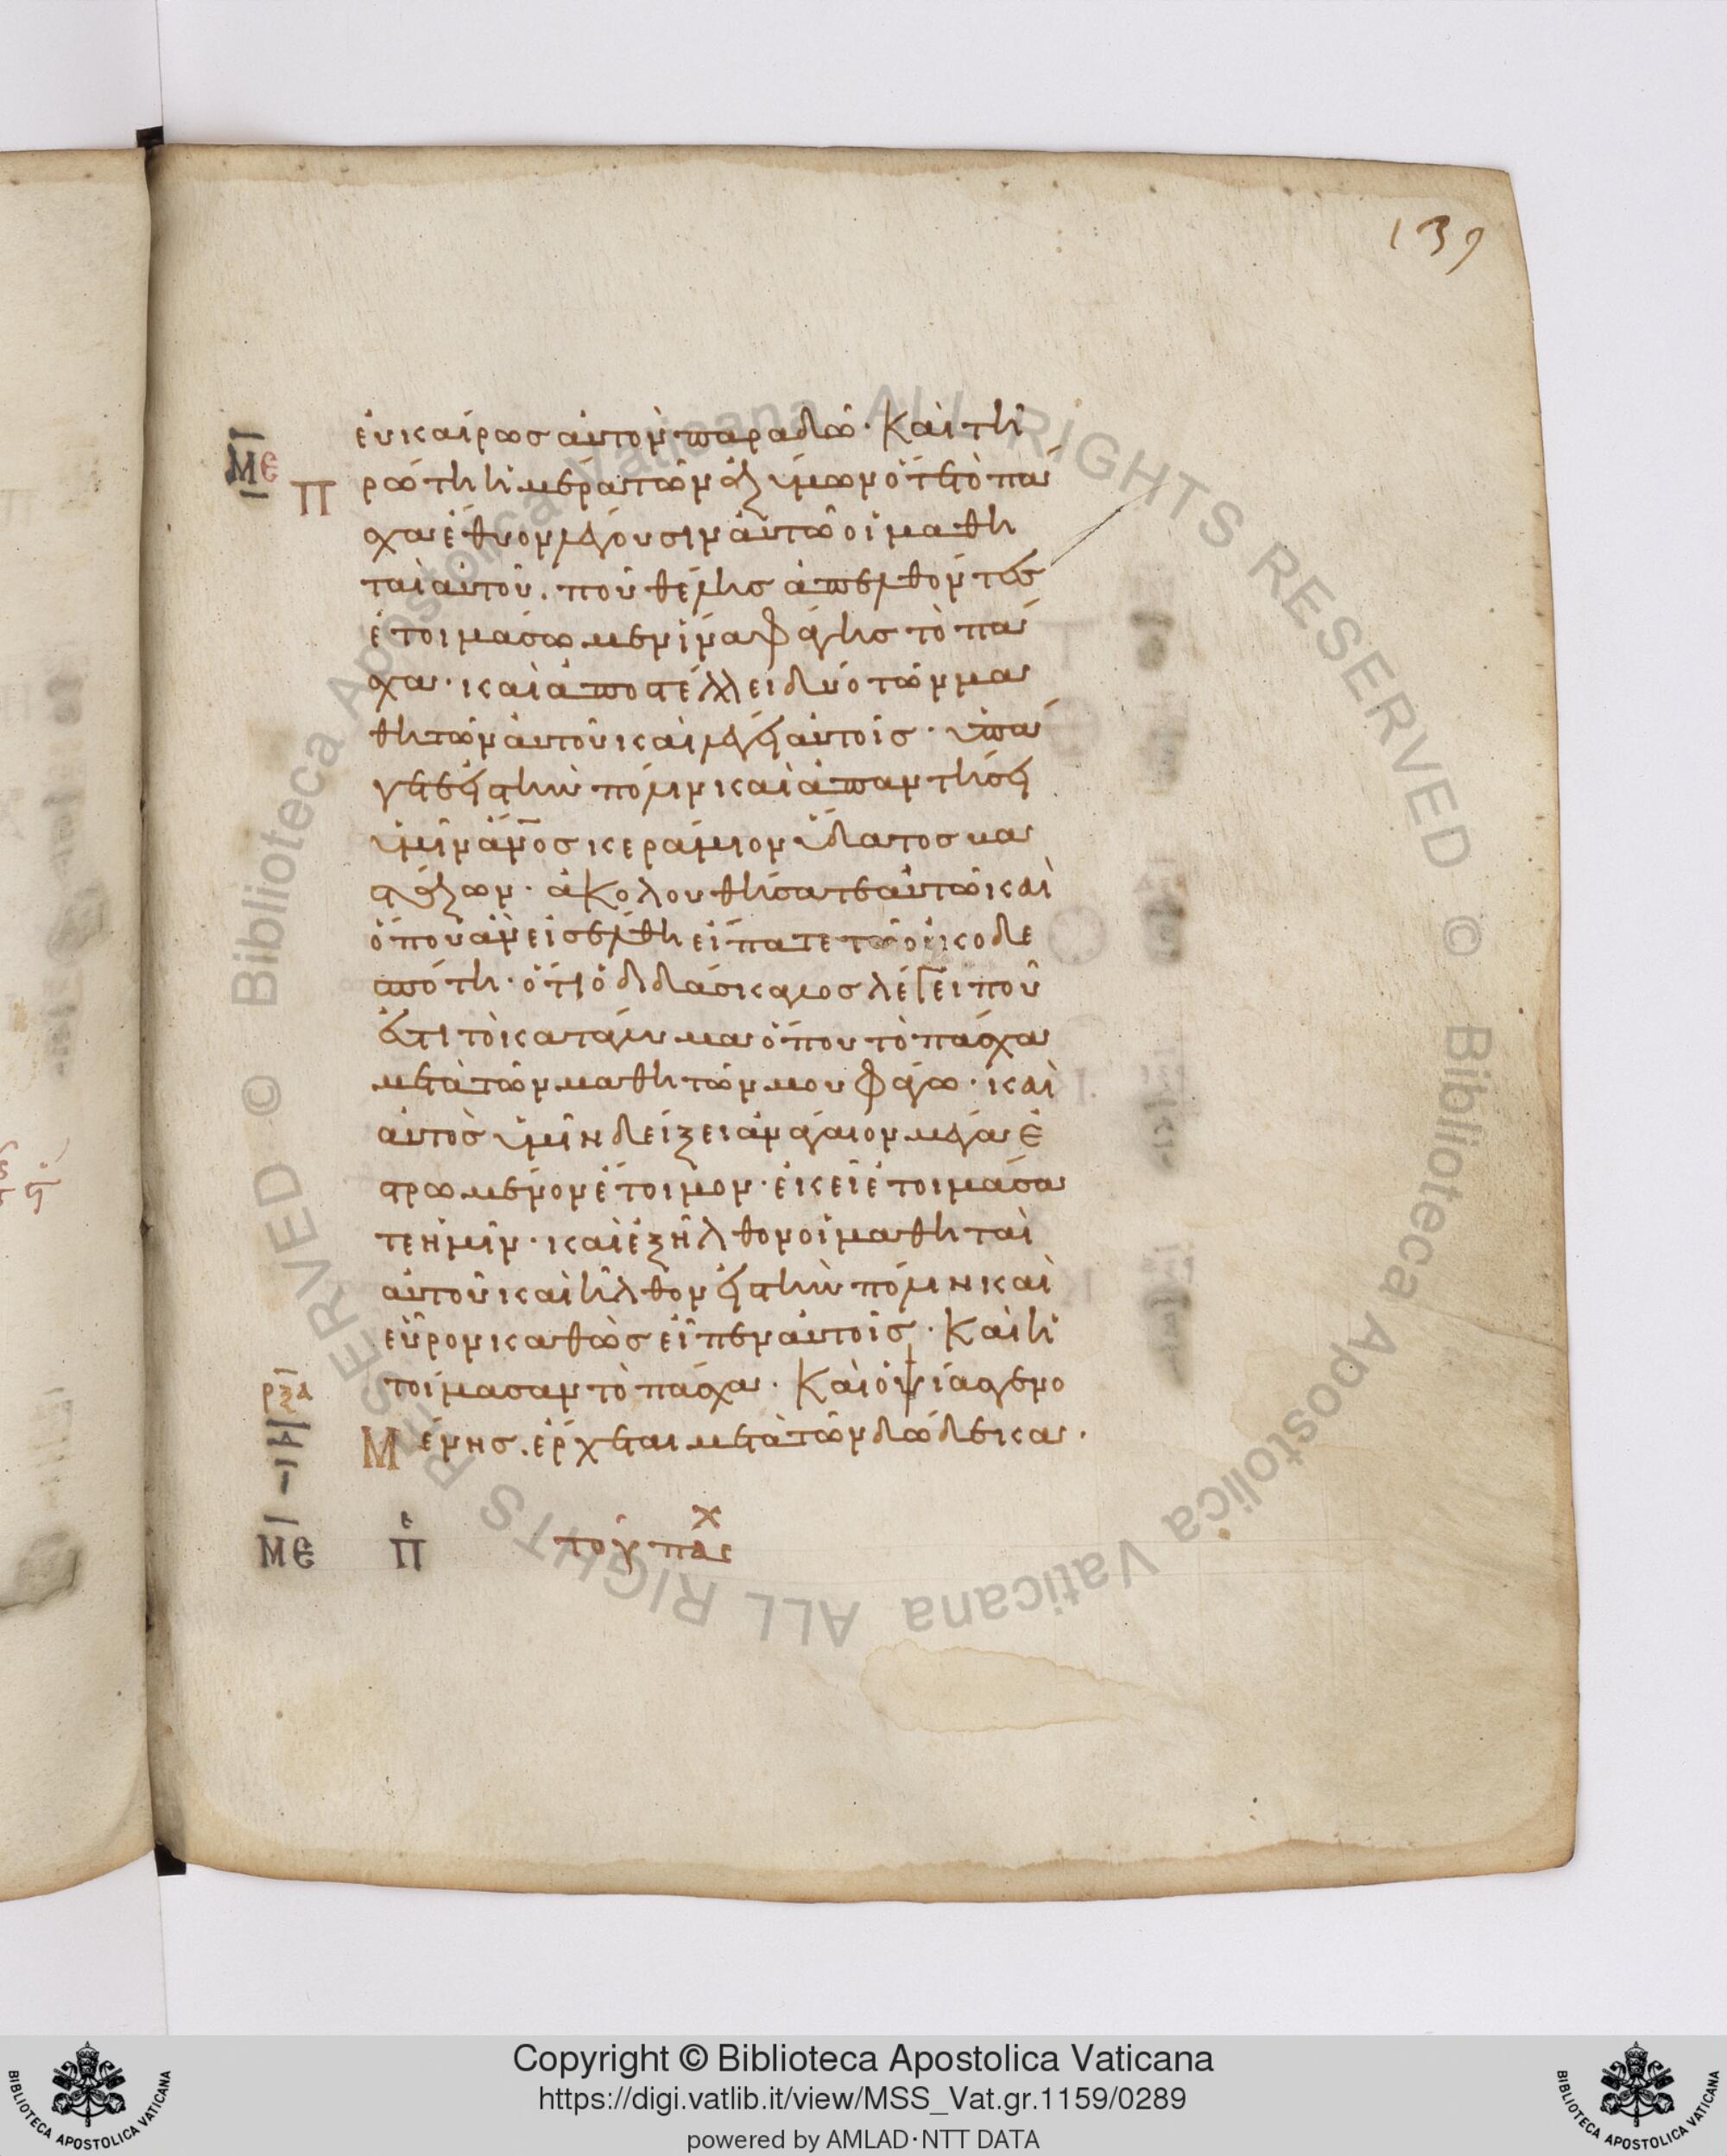 139
εὐκαίρως αὐτὸν παραδῶ· Καὶ τῆ
ΜΕ
Π ρώτη ἡμέρα τῶν ἀζύμων ὅτε τὸ πά
σχα ἔθυον λέγουσιν αὐτῶ οἱ μαθη
ταὶ αὐτοῦ. ποῦ θέλης ἀπελθόντες
ἑτοιμάσωμεν ἵνα φάγης τὸ πά
σχα· καὶ ἀποστέλλει δύο τῶν μα
θητῶν αὐτοῦ καὶ λέγει αὐτοῖς· ὑπά
γετε εἰς τὴν πόλιν καὶ ἀπαντήσει
ὑμῖν ἄνος κεράμιον ὕδατος βα
στάζων· ἀκολουθήσατε αὐτῶ καὶ
ὅπου ἂν εἰσέλθη εἴπατε τῶ οἰκοδε
σπότη· ὅτι ὁ διδάσκαλος λέγει ποῦ
ἐστι τὸ κατάλυμα ὅπου τὸ πάσχα
μετὰ τῶν μαθητῶν μου φάγω· καὶ
αὐτὸς ὑμῖν δείξει ἀνάγαιον μέγα ἐ
στρωμένον ἕτοιμον· ἐκεῖ ἑτοιμάσα
τε ἡμῖν· καὶ ἐξῆλθον οἱ μαθηταὶ
αὐτοῦ καὶ ἦλθον εἰς τὴν πόλιν καὶ
εὗρον καθὼς εἶπεν αὐτοῖς· Καὶ ἡ
τοίμασαν τὸ πάσχα· Καὶ ὀψίας γενο
ρξα
Μ ένης. ἔρχεται μετὰ τῶν δώδεκα·
ΜΕ Π του πας χ
Copyright © Biblioteca Apostolica Vaticana
https://digi.vatlib.it/view/MSS_Vat.gr.1159/0289
powered by AMLAD·NTT DATA
BIBLIOTECA APOSTOLICA VATICANA
BIBLIOTECA APOSTOLICA VATICANA
© Biblioteca Apostolica Vaticana ALL RIGHTS RESERVED
© Biblioteca Apostolica Vaticana ALL RIGHTS RESERVED